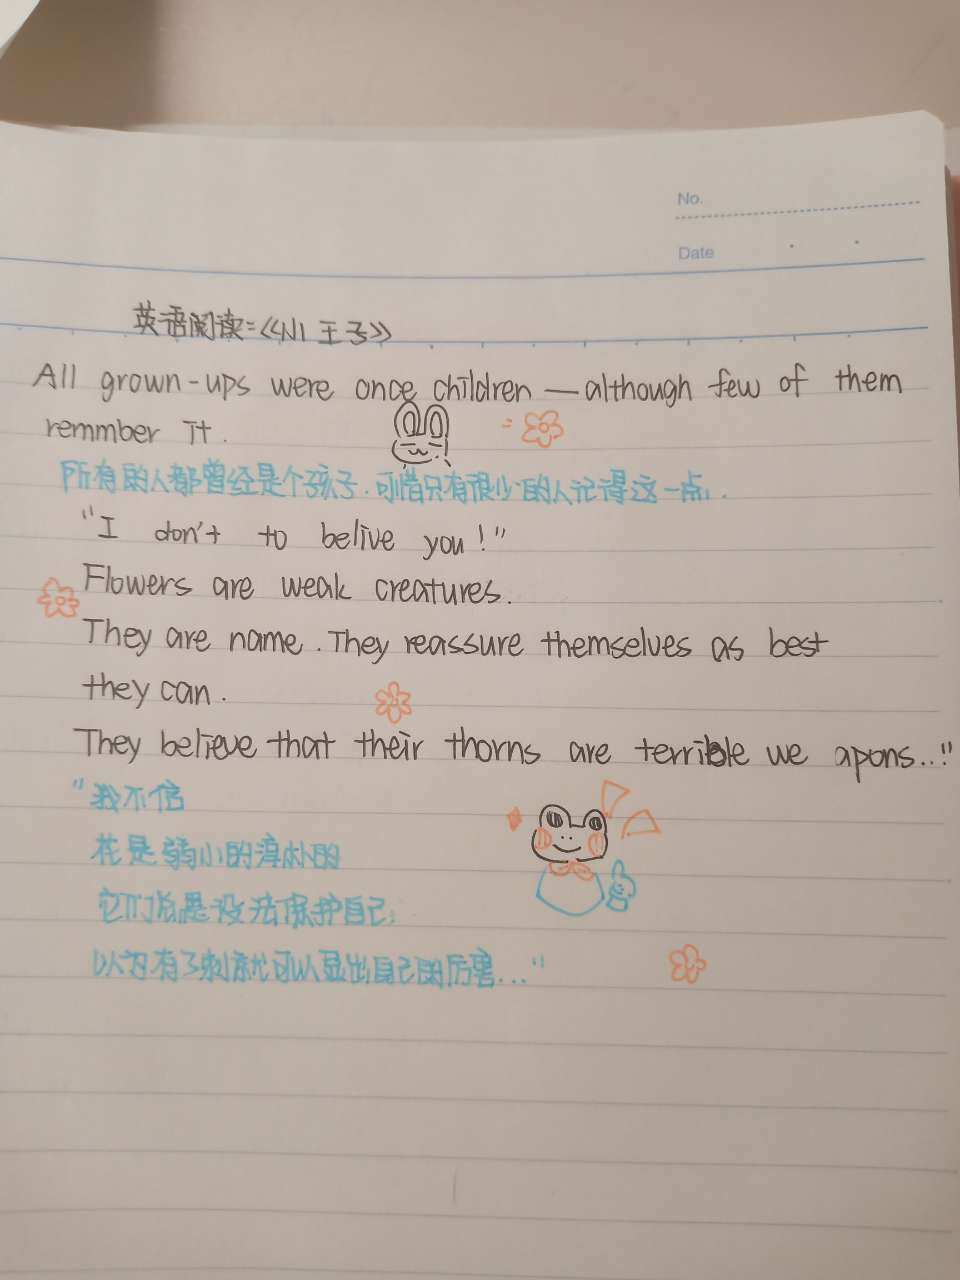 No.
Date
英语阅读:《小王子》
All grown-ups were once children — although few of them
remmber it.
所有的人都曾经是个孩子.可惜只有很少的人记得这一点.
"I don't to belive you!"
Flowers are weak creatures.
They are name. They reassure themselves as best
they can.
They believe that their thorns are terrible we apons..."
"我不信
花是弱小的淳朴的
它们总是设法保护自己,
以为有了刺就可以显出自己的厉害..."